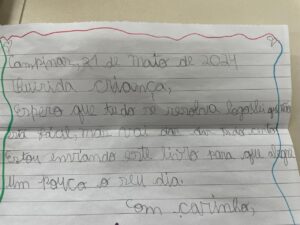 Campinas, 21 de Maio de 2024
Querida criança,
Espero que tudo se resolva logo
mas vai dar tudo certo!
Estou enviando este livro para que alegre
um pouco o seu dia.
Com carinho,